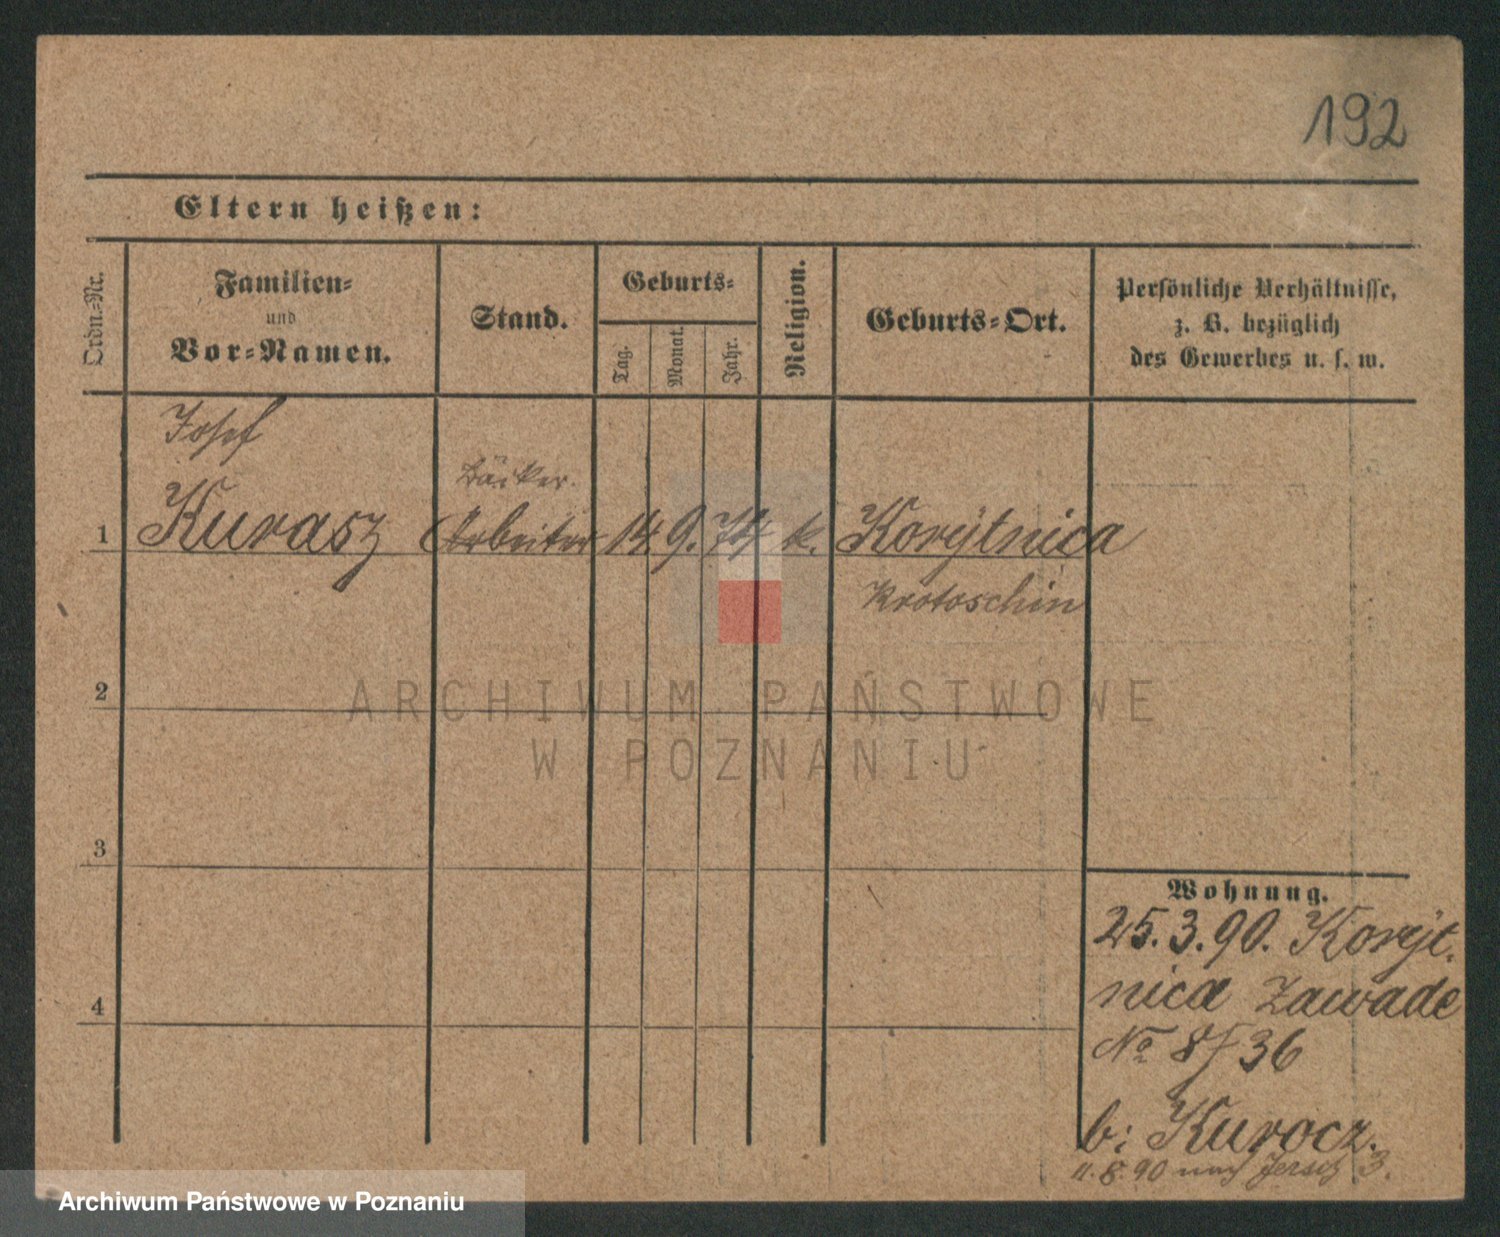 192
Eltern heißen:
Ordn.-Nr.
Familien-
und
Vor-Namen.
Stand.
Geburts-
Tag.
Monat.
Jahr.
Religion.
Geburts-Ort.
Persönliche Verhältnisse,
z. B. bezüglich
des Gewerbes u. s. w.
Josef
Bäcker.
1 Kurasz Arbeiter 14. 9. 74 k. Korÿtnica
Krotoschin
2
ARCHIWUM PAŃSTWOWE
W POZNANIU
3
Wohnung.
25. 3. 90. Korÿt
nica Zawade
4
No 8/36
b: Kurocz.
11. 8. 90 nach Jersitz 3.
Archiwum Państwowe w Poznaniu